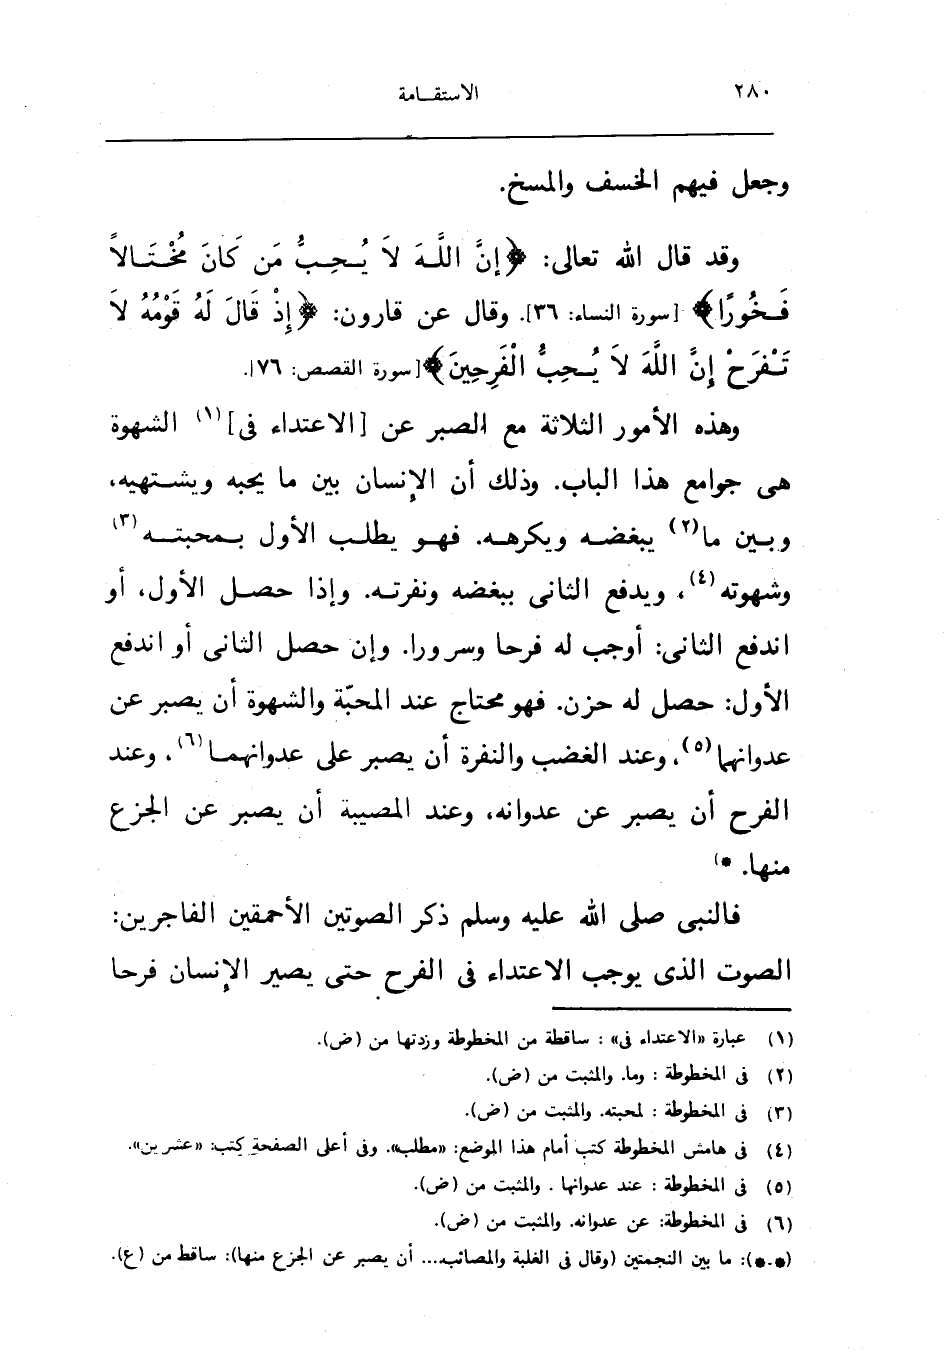 ٢٨٠ الاستقـامة
وجعل فيهم الخسف والمسخ.
وقد قال الله تعالى: ﴿إِنَّ اللَّـهَ لاَ يُـحِـبُّ مَن كَانَ مُخْتَـالاً
فَـخُورًا﴾ [سورة النساء: ٣٦]. وقال عن قارون: ﴿إِذْ قَالَ لَهُ قَوْمُهُ لاَ
تَفْرَحْ إِنَّ اللَّهَ لاَ يُـحِبُّ الْفَرِحِينَ﴾ [سورة القصص: ٧٦].
وهذه الأمور الثلاثة مع الصبر عن [الاعتداء فى] (١) الشهوة
هى جوامع هذا الباب. وذلك أن الإنسان بين ما يحبه ويشـتهيه،
وبـين ما(٢) يبغضـه ويكرهـه. فهـو يطلـب الأول بـمحبتـه (٣)
وشهوته (٤)، ويدفع الثانى ببغضه ونفرتـه. وإذا حصـل الأول، أو
اندفع الثانى: أوجب له فرحا وسرورا. وإن حصل الثانى أو اندفع
الأول: حصل له حزن. فهو محتاج عند المحبّة والشهوة أن يصبر عن
عدوانهما(٥)، وعند الغضب والنفرة أن يصبر على عدوانهمـا(٦)، وعند
الفرح أن يصبر عن عدوانه، وعند المصيبة أن يصبر عن الجزع
منها. *)
فالنبى صلى الله عليه وسلم ذكر الصوتين الأحمقين الفاجرين:
الصوت الذى يوجب الاعتداء فى الفرح حتى يصير الإنسان فرحا
(١) عبارة «الاعتداء فى» : ساقطة من المخطوطة وزدتها من (ض).
(٢) فى المخطوطة : وما. والمثبت من (ض).
(٣) فى المخطوطة : لمحبته. والمثبت من (ض).
(٤) فى هامش المخطوطة كتب أمام هذا الموضع: «مطلب». وفى أعلى الصفحة كتب: «عشرين».
(٥) فى المخطوطة : عند عدوانها . والمثبت من (ض).
(٦) فى المخطوطة: عن عدوانه. والمثبت من (ض).
(*-*): ما بين النجمتين (وقال فى الغلبة والمصائب.... أن يصبر عن الجزع منها): ساقط من (ع).